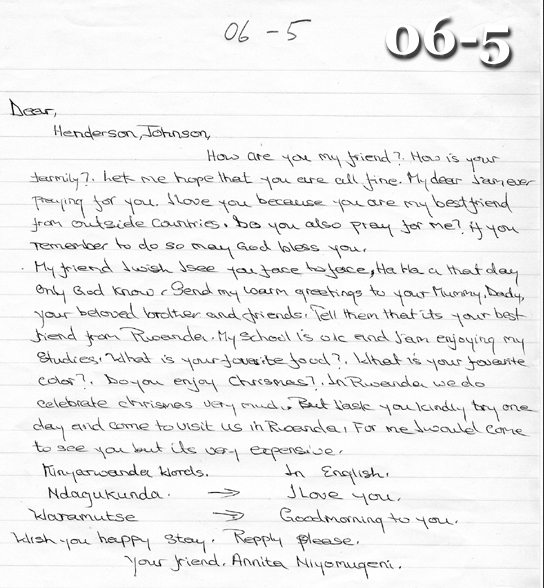 06-5
06-5
Dear,
Henderson, Johnson,
How are you my friend?. How is your
farmily?. Let me hope that you are all fine. My dear I am ever
praying for you. I love you because you are my best friend
from outside countries. Do you also pray for me? if you
remember to do so may God bless you.
My friend I wish I see you face to face, Ha Ha a that day
only God know. Send my warm greetings to your Mummy, Dady,
your beloved brother and friends. Tell them that its your best
friend from Rwanda. My school is o.k and I am enjoying my
studies. What is your favorite food?. What is your favourite
color?. Do you enjoy Chrismas?. In Rwanda we do
celebrate chrismas very much. But I ask you kindly try one
day and come to visit us in Rwanda, For me I would come
to see you but its very expensive.
Kinyarwanda Words. In English.
Ndagukunda. → I Love you.
Waramutse → Goodmorning to you.
Wish you happy stay. Repply please.
Your friend. Annita Niyomugeni.